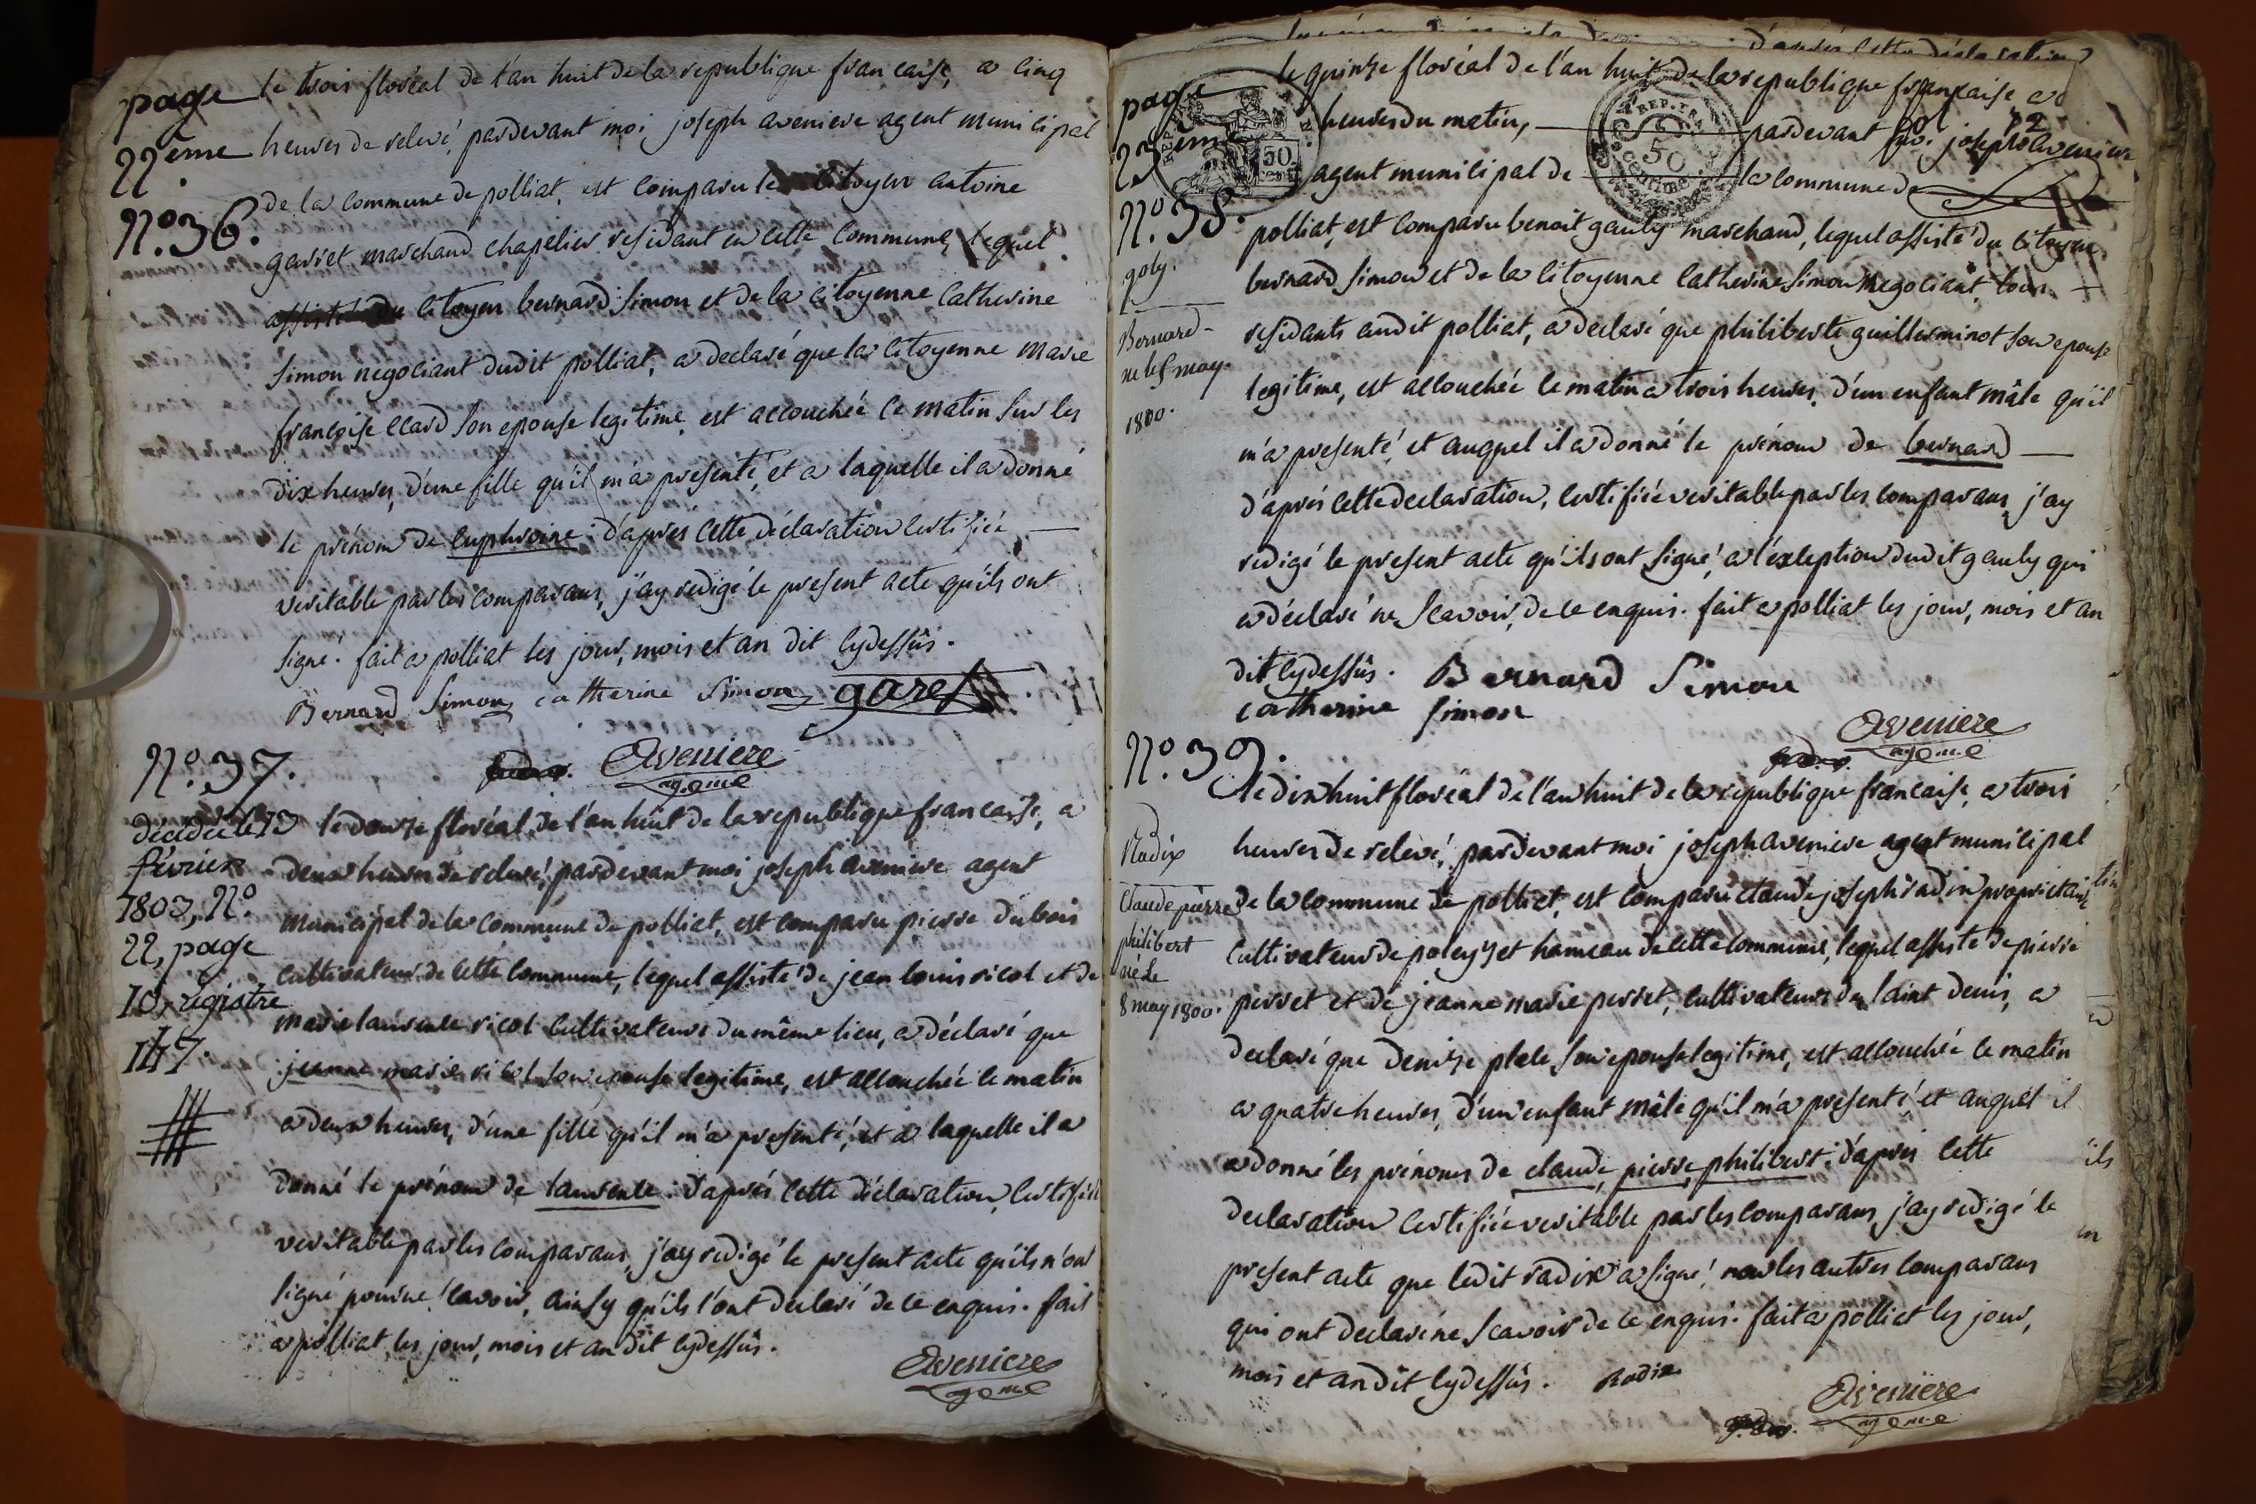 page
22ème
N.º 36.
le trois floréal de l'an huit de la republique francaise, a cinq
heures de relevé, pardevant moi joseph aveniere agent municipal
de la commune de polliat, est comparu le citoyen antoine
garret marchand chapelier residant en cette commune, lequel
assisté du citoyen bernard simon et de la citoyenne Catherine
Simon negociant dudit polliat, a declaré que la citoyenne marie
françoise ecard son epouse legitime, est accouchée ce matin sur les
dix heures, d'une fille qu'il m'a presenté, et a laquelle il a donné
le prénom de euphroine. d'aprés cette déclaration certifiée
veritable par les comparans, j'ay redigé le present acte qu'ils ont
signé. fait a polliat les jour, mois et an dit cydessûs.
Bernard Simon catherine Simon garet
Aveniere
agent
N.º 37.
décédée le 13
février
1803, N.º
22, page
10, registre
147.
le douze floréal de l'an huit de la republique francaise, a
deux heures de relevé, pardevant moi joseph aveniere agent
municipal de la commune de polliat, est comparu pierre dubois
cultivateur de cette commune, lequel assisté de jean louis ricol et de
marie laurence ricol cultivateurs du même lieu, a déclaré que
jeanne marie ricol son epouse legitime, est accouchée ce matin
a deux heures, d'une fille qu'il m'a presenté, et a laquelle il a
donné le prénom de laurence. d'aprés cette déclaration, certifiée
veritable par les comparans, j'ay redigé le present acte qu'ils n'ont
signé pour ne scavoir, ainsy qu'ils l'ont declaré de ce enquis. fait
a polliat, les jour, mois et an dit cydessûs.
Aveniere
agent
page
23ème
N.º 38.
goly.
Bernard
né le 5 may
1800.
le quinze floréal de l'an huit de la republique française, a
heures du matin, pardevant moi joseph aveniere
agent municipal de la commune de
REP.
50
cent.
50
centime
polliat, est comparu benoit gauly marchand, lequel assisté du citoyen
bernard simon et de la citoyenne Catherine Simon negociant, tous
residants audit polliat, a declaré que philiberte guillerminot son epouse
legitime, est accouchée ce matin a trois heures, d'un enfant mâle qu'il
m'a presenté, et auquel il a donné le prénom de bernard
d'aprés cette declaration, certifiée veritable par les comparans, j'ay
redigé le present acte qu'ils ont signé, a l'exception dudit gauly qui
a déclaré ne scavoir, de ce enquis. fait a polliat les jour, mois et an
dit cydessûs. Bernard Simon
catherine simon
Aveniere
agent
N.º 39.
Radix
Claude pierre
philibert
né le
8 may 1800.
le dix huit floréal de l'an huit de la republique francaise, a trois
heures de relevé, pardevant moi joseph aveniere agent municipal
de la commune de polliat, est comparu claude joseph radix proprietaire
cultivateur de poleyset hameau de cette commune, lequel assisté de pierre
perret et de jeanne marie perret, cultivateurs du saint denis, a
declaré que denize plele son epouse legitime, est accouchée ce matin
a quatre heures, d'un enfant mâle qu'il m'a presenté, et auquel il
a donné les prénoms de claude, pierre, philibert. d'apres cette
declaration certifiée veritable par les comparans, j'ay redigé le
present acte que ledit radix a signé, non les autres comparans
qui ont declaré ne scavoir de ce enquis. fait a polliat les jour,
mois et an dit cydessûs. Radix
Aveniere
agent